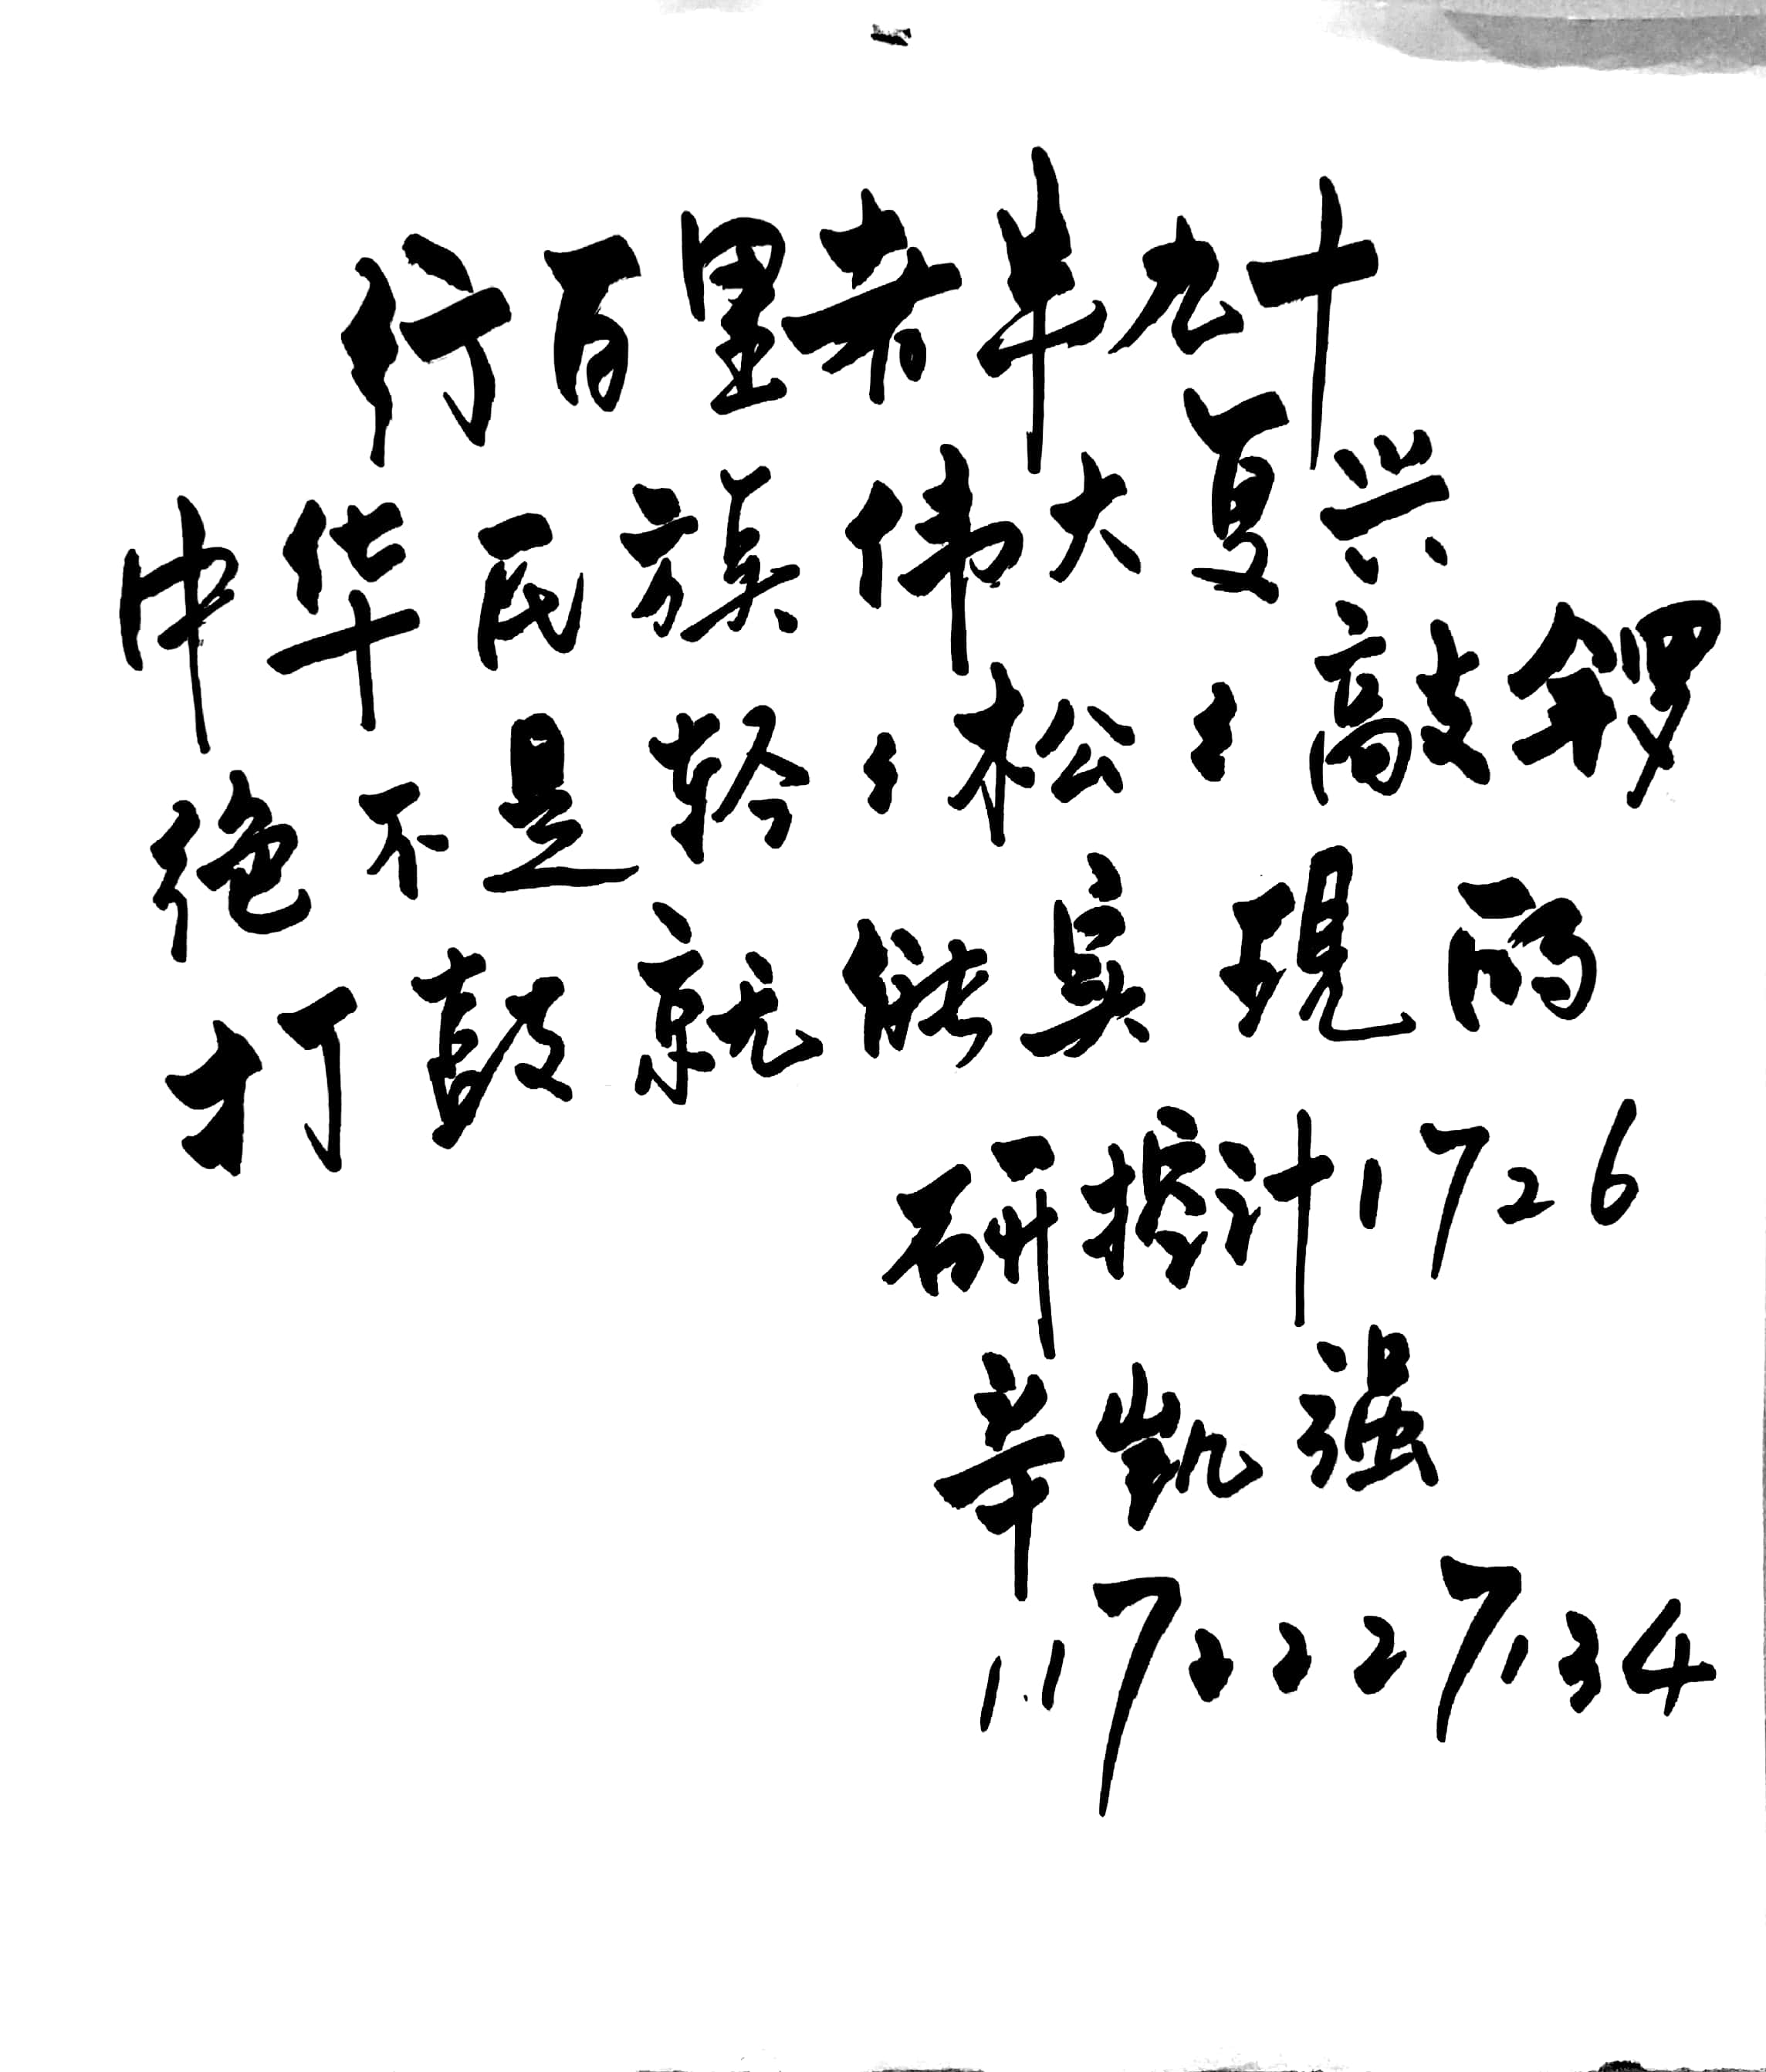 行百里者半九十
中华民族伟大复兴
绝不是轻〻松〻敲锣
打鼓就能实现的
研控计1726
辛凯强
1172227134